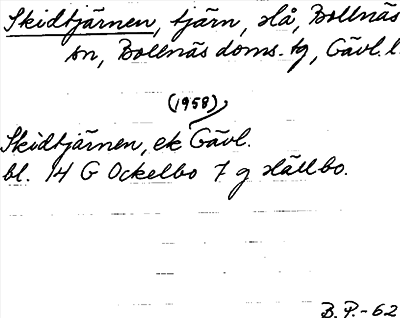 Skidtjärnen, tjärn, slå, Bollnäs
sn, Bollnäs doms. tg, Gävl. l.
(1958)
Skidtjärnen, ek Gävl.
bl. 14 G Ockelbo 7 g Hällbo.
B. P. - 62